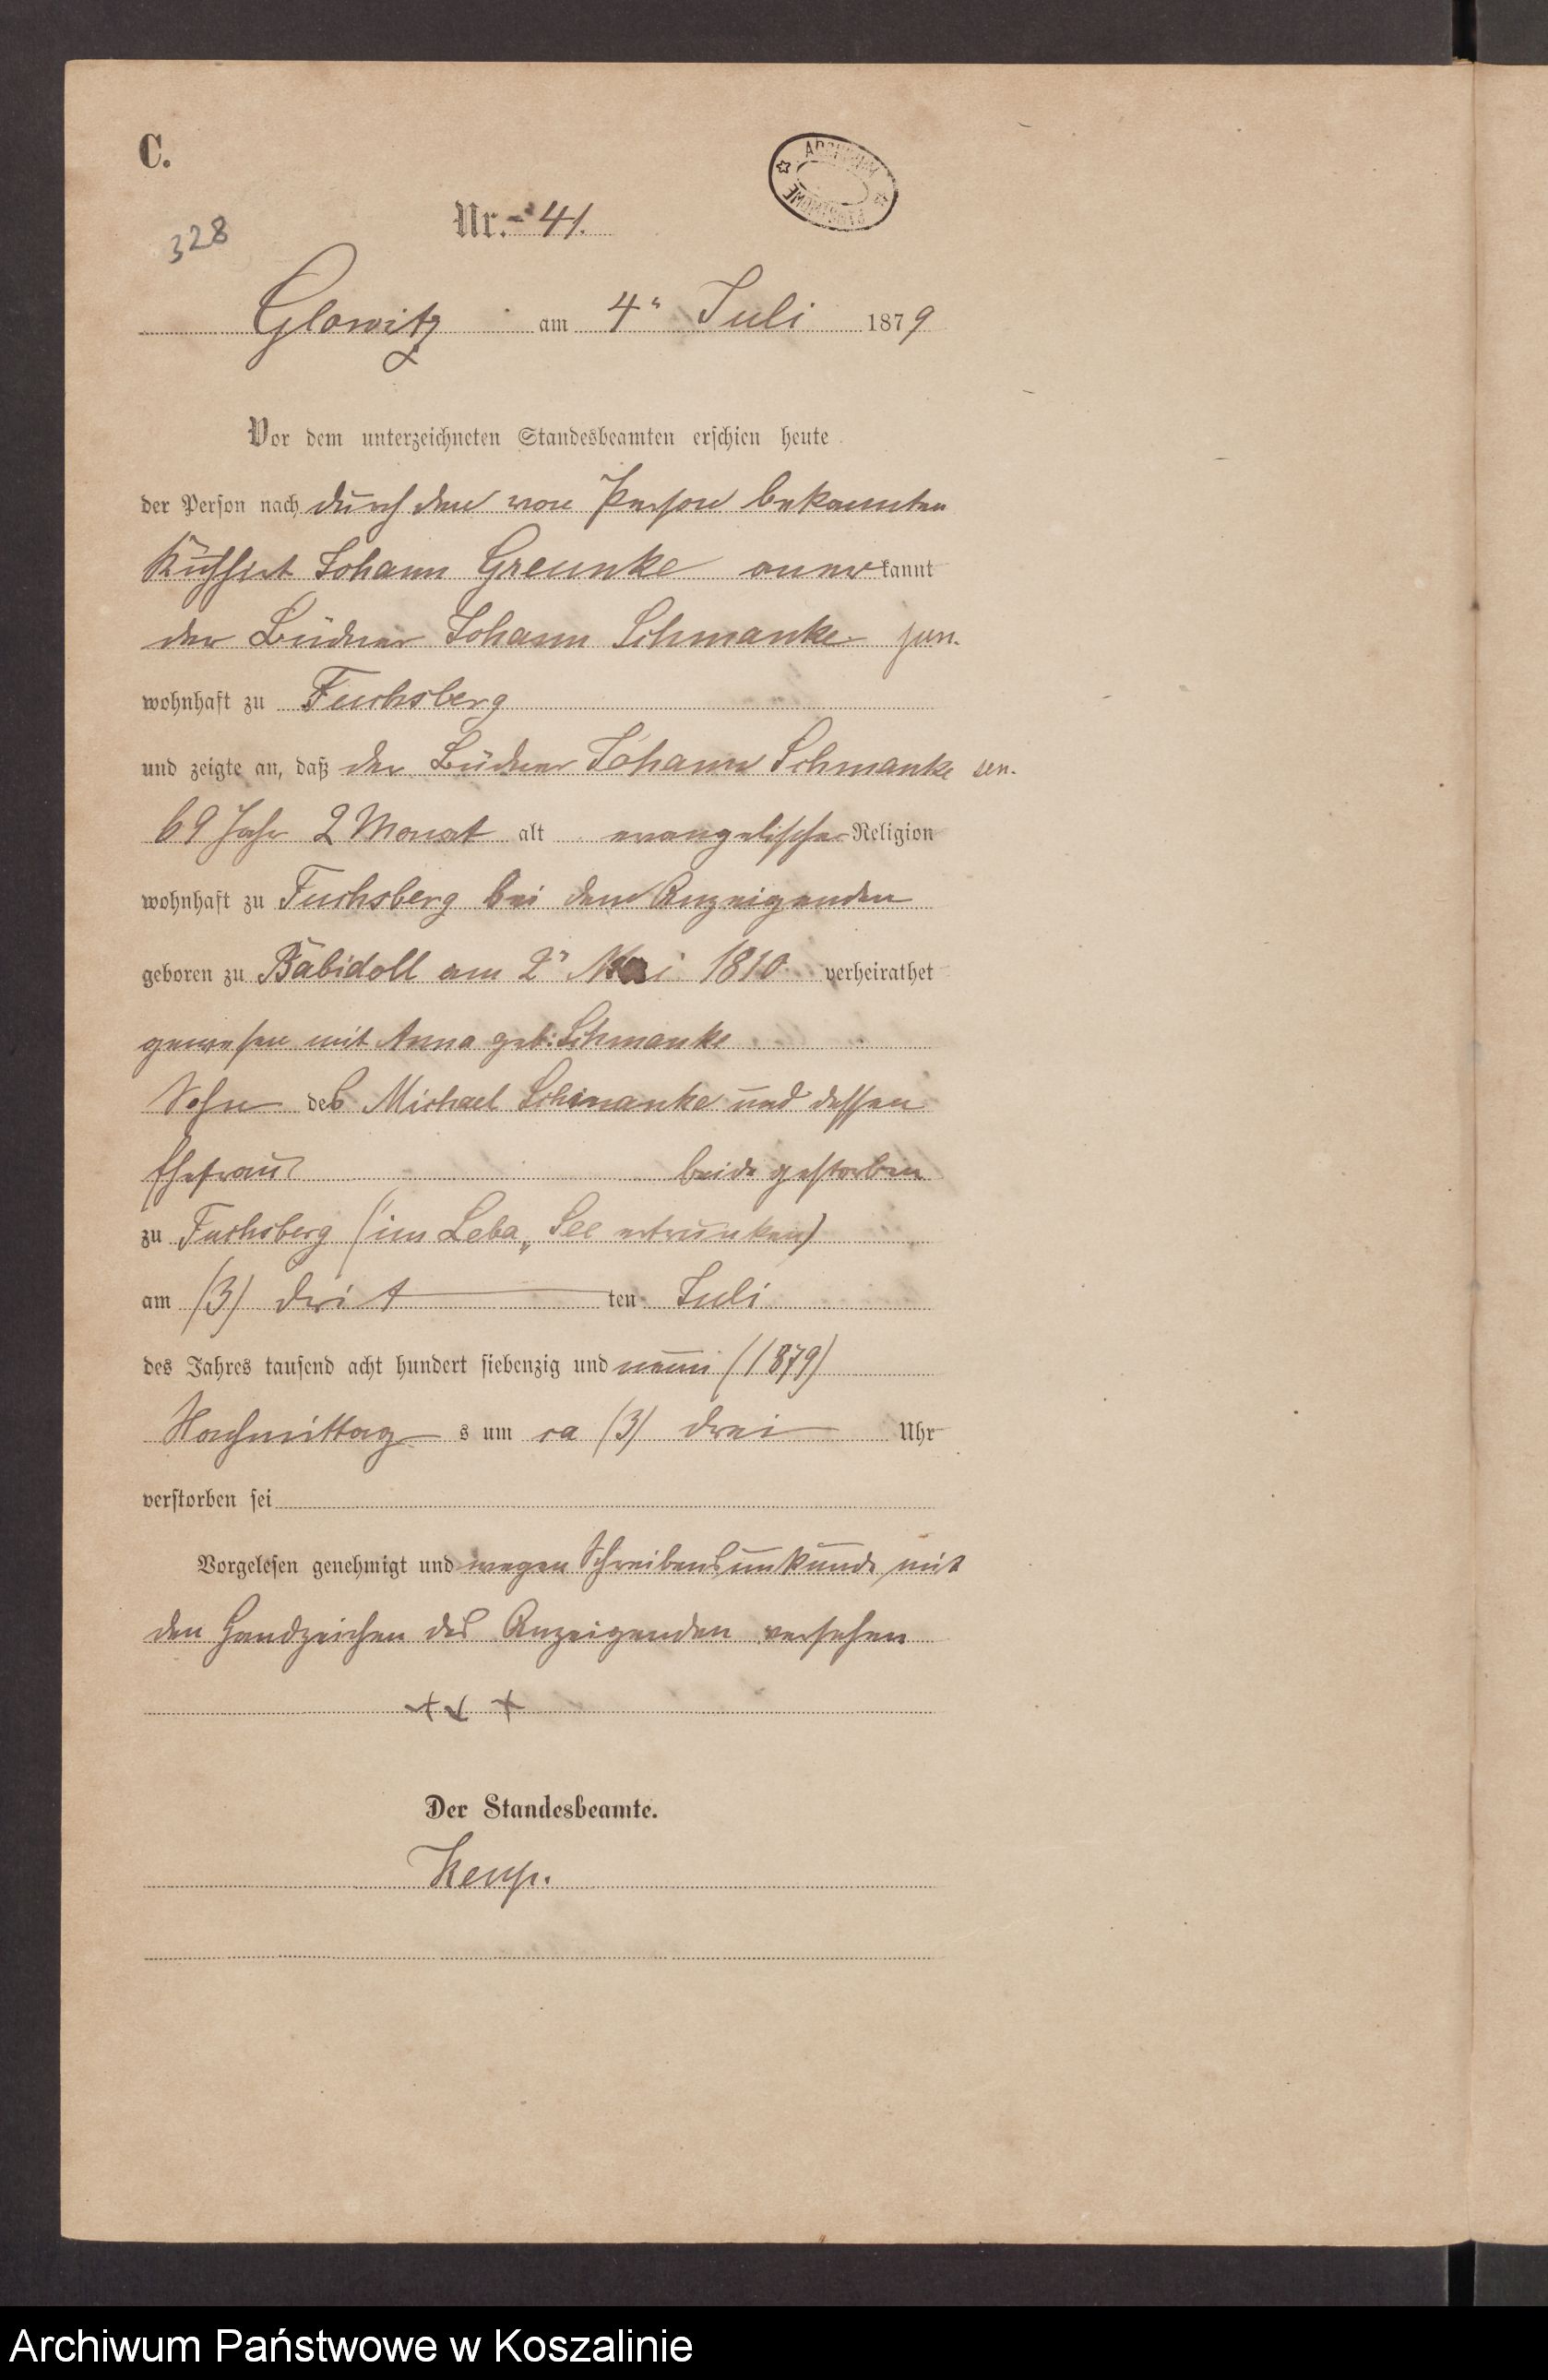 C.
328
Nr. 41.
Glowitz am 4" Juli 1879
Vor dem unterzeichneten Standesbeamten erschien heute
der Person nach durch den von Person bekannten
Kuhhirt Johann Greunke anerkannt
der Büdner Johann Schmanke jun.
wohnhaft zu Fuchsberg
und zeigte an, daß der Büdner Johann Schmanke sen.
69 Jahr 2 Monat alt evangelischer Religion
wohnhaft zu Fuchsberg bei dem Anzeigenden
geboren zu Babidoll am 2" Mai 1810 verheirathet
gewesen mit Anna geb. Schmanke
Sohn des Michael Schmanke und dessen
Ehefrau beide gestorben
zu Fuchsberg (im Leba„ See ertrunken)
am (3) drit ten Juli
des Jahres tausend acht hundert siebenzig und neun (1879)
Nachmittag s um ca (3) drei Uhr
verstorben sei
Vorgelesen genehmigt und wegen Schreibensunkunde mit
den Handzeichen des Anzeigenden versehen
+ + +
Der Standesbeamte.
Archiwum Państwowe w Koszalinie